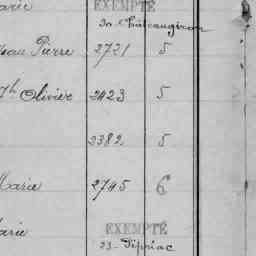 arie EXEMPTÉ
Châteaugiron
Jean Pierre 2721 5
Olivier 2423 5
2382 5
Marie 2745 6
arie EXEMPTÉ
23 Pipriac